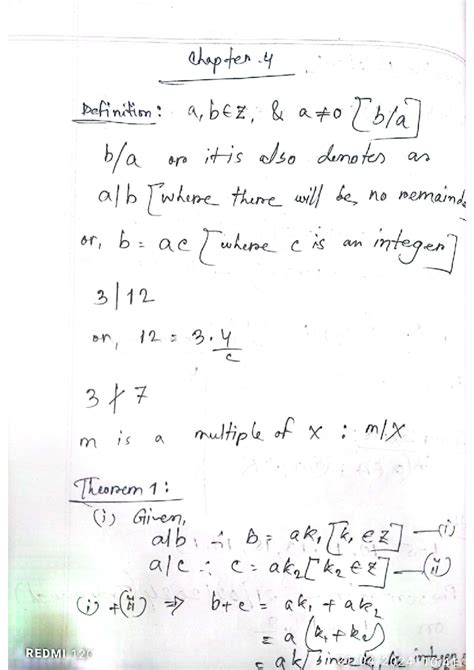 Chapter-4
Definition: a, b∈Z, & a≠0 [b/a]
b/a or it is also denotes as
a|b [where there will be no remaind
or, b = ac [where c is an integer]
3|12
or, 12 = 3.4
c
3∤7
m is a multiple of x : m/x
Theorem 1:
(i) Given,
a|b ∴ b = ak₁ [k₁ ∈ Z] —(i)
a|c ∴ c = ak₂ [k₂ ∈ Z] —(ii)
(i) + (ii) ⇒ b+c = ak₁ + ak₂
= a (k₁+k₂)
= ak [since k, be integer
REDMI 12C